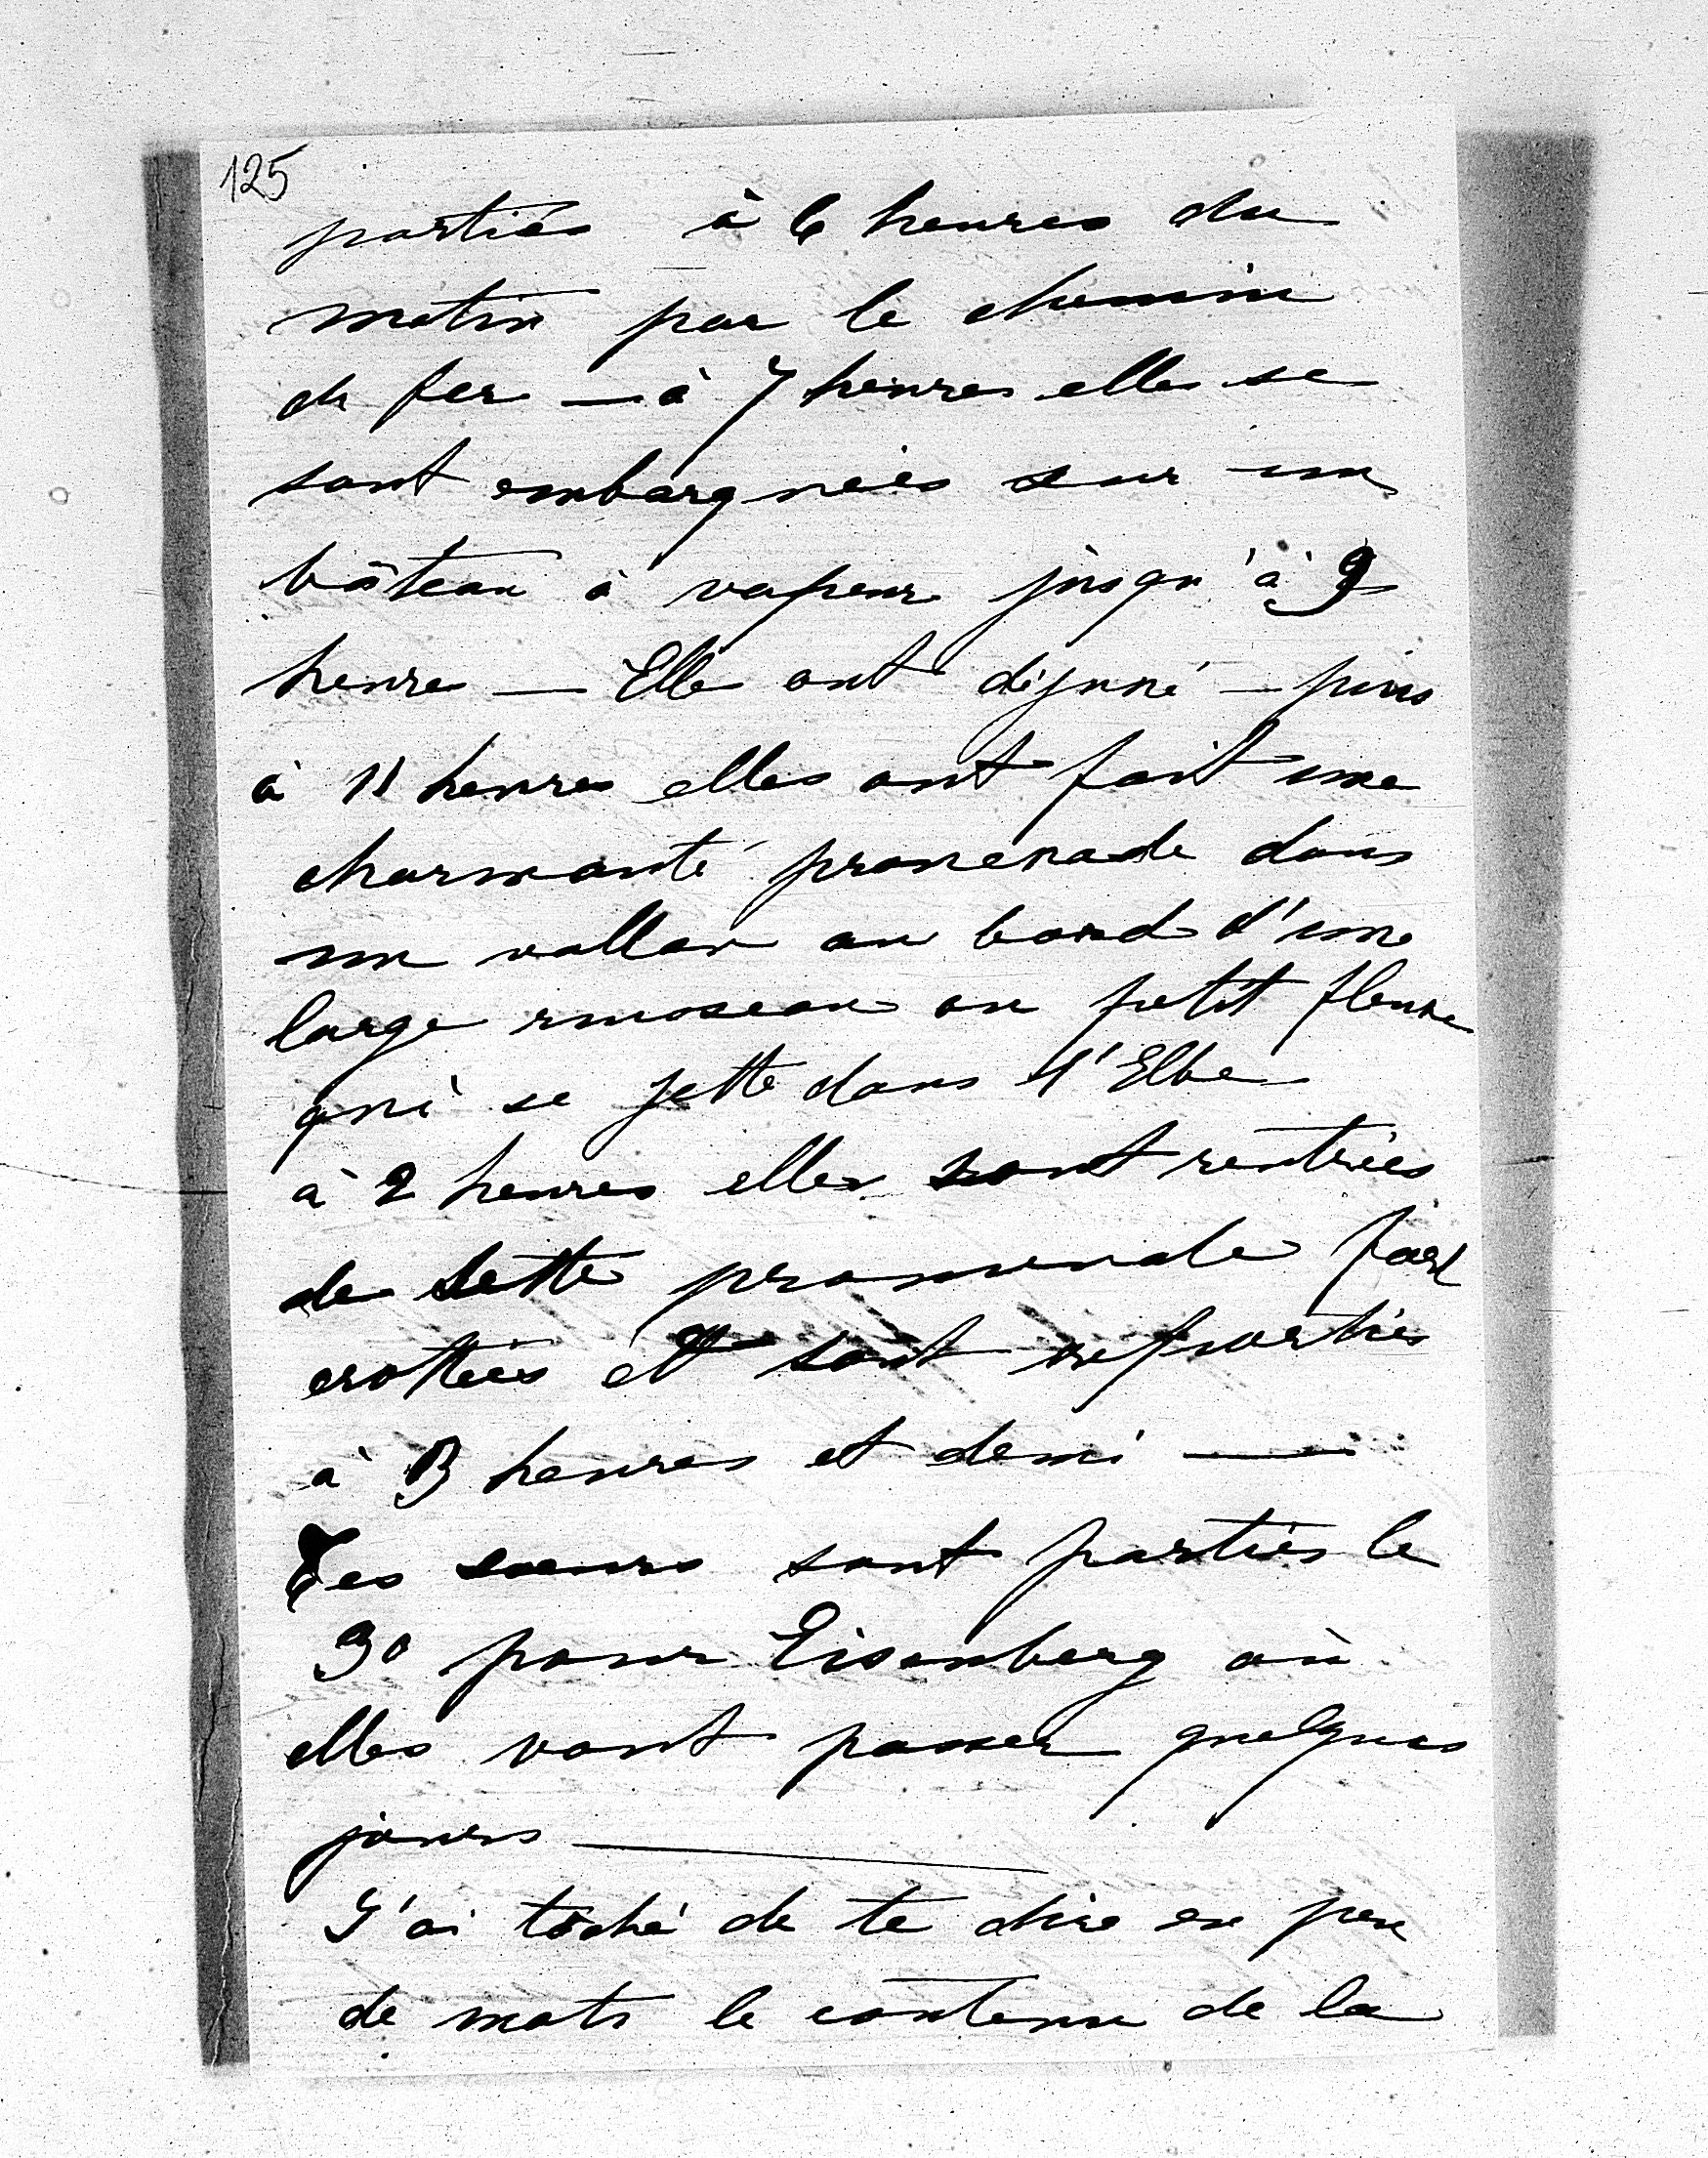 125
parties à 6 heures du
matin par le chemin
de fer — à 7 heures elles se
sont embarquées sur un
bâteau à vapeur jusqu'à 9
heures — Elles ont déjuné — puis
à 11 heures elles ont fait une
charmante promenade dans
un vallon au bord d'une
large ruisseau ou petit fleuve
qui se jette dans l'Elbe
à 2 heures elles sont rentrées
de cette promenade fort
crottées et sont reparties
à 3 heures et demi —
Tes soeurs sont parties le
30 pour Eisenberg où
elles vont passer quelques
jours —
J'ai tâché de te dire en peu
de mots le contenu de la